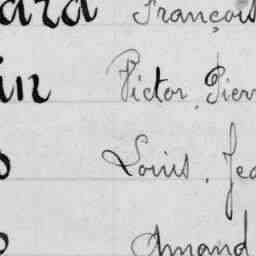 ard François
in Victor, Pierr
s Louis, Jea
Amand